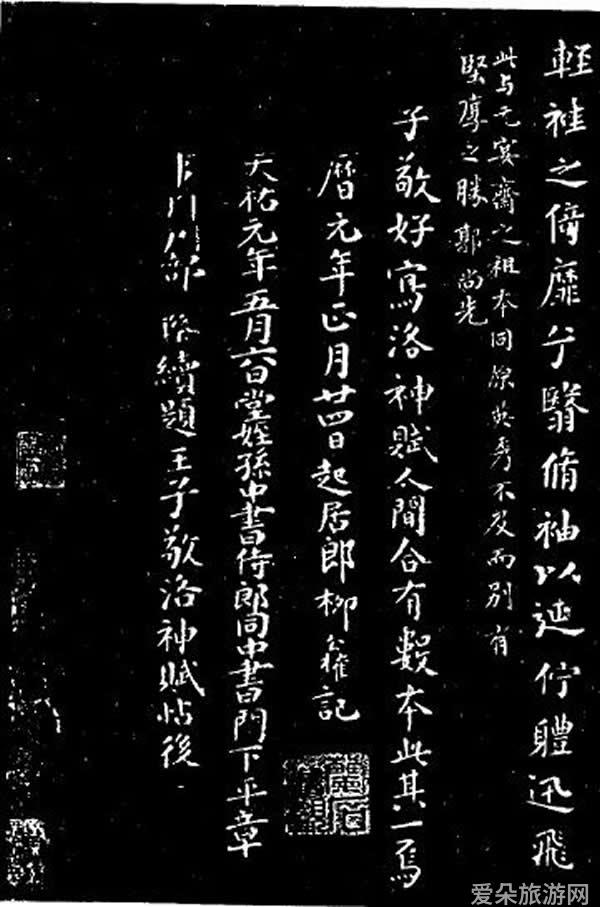 輕袿之倚靡兮翳脩袖以延佇體迅飛
此与元宴齋之祖本同原 秀不及而別有
堅厚之勝 郭尚先
子敬好寫洛神賦人間合有數本此其一焉
曆元年正月廿四日起居郎柳 記
天祐元年五月六日堂姪孫中書侍郎同中書門下平章
部 續題王子敬洛神賦帖後
爱朵旅游网